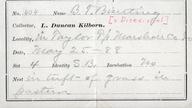 No. 404 B. T. Bunting
Collector, L. Duncan Kilborn.
Locality, Nr Taylor Marshall Co
Date, May 25 - 88
Set 4 Identity S.B. Incubation No
Nest in tuft of grass in
pasture